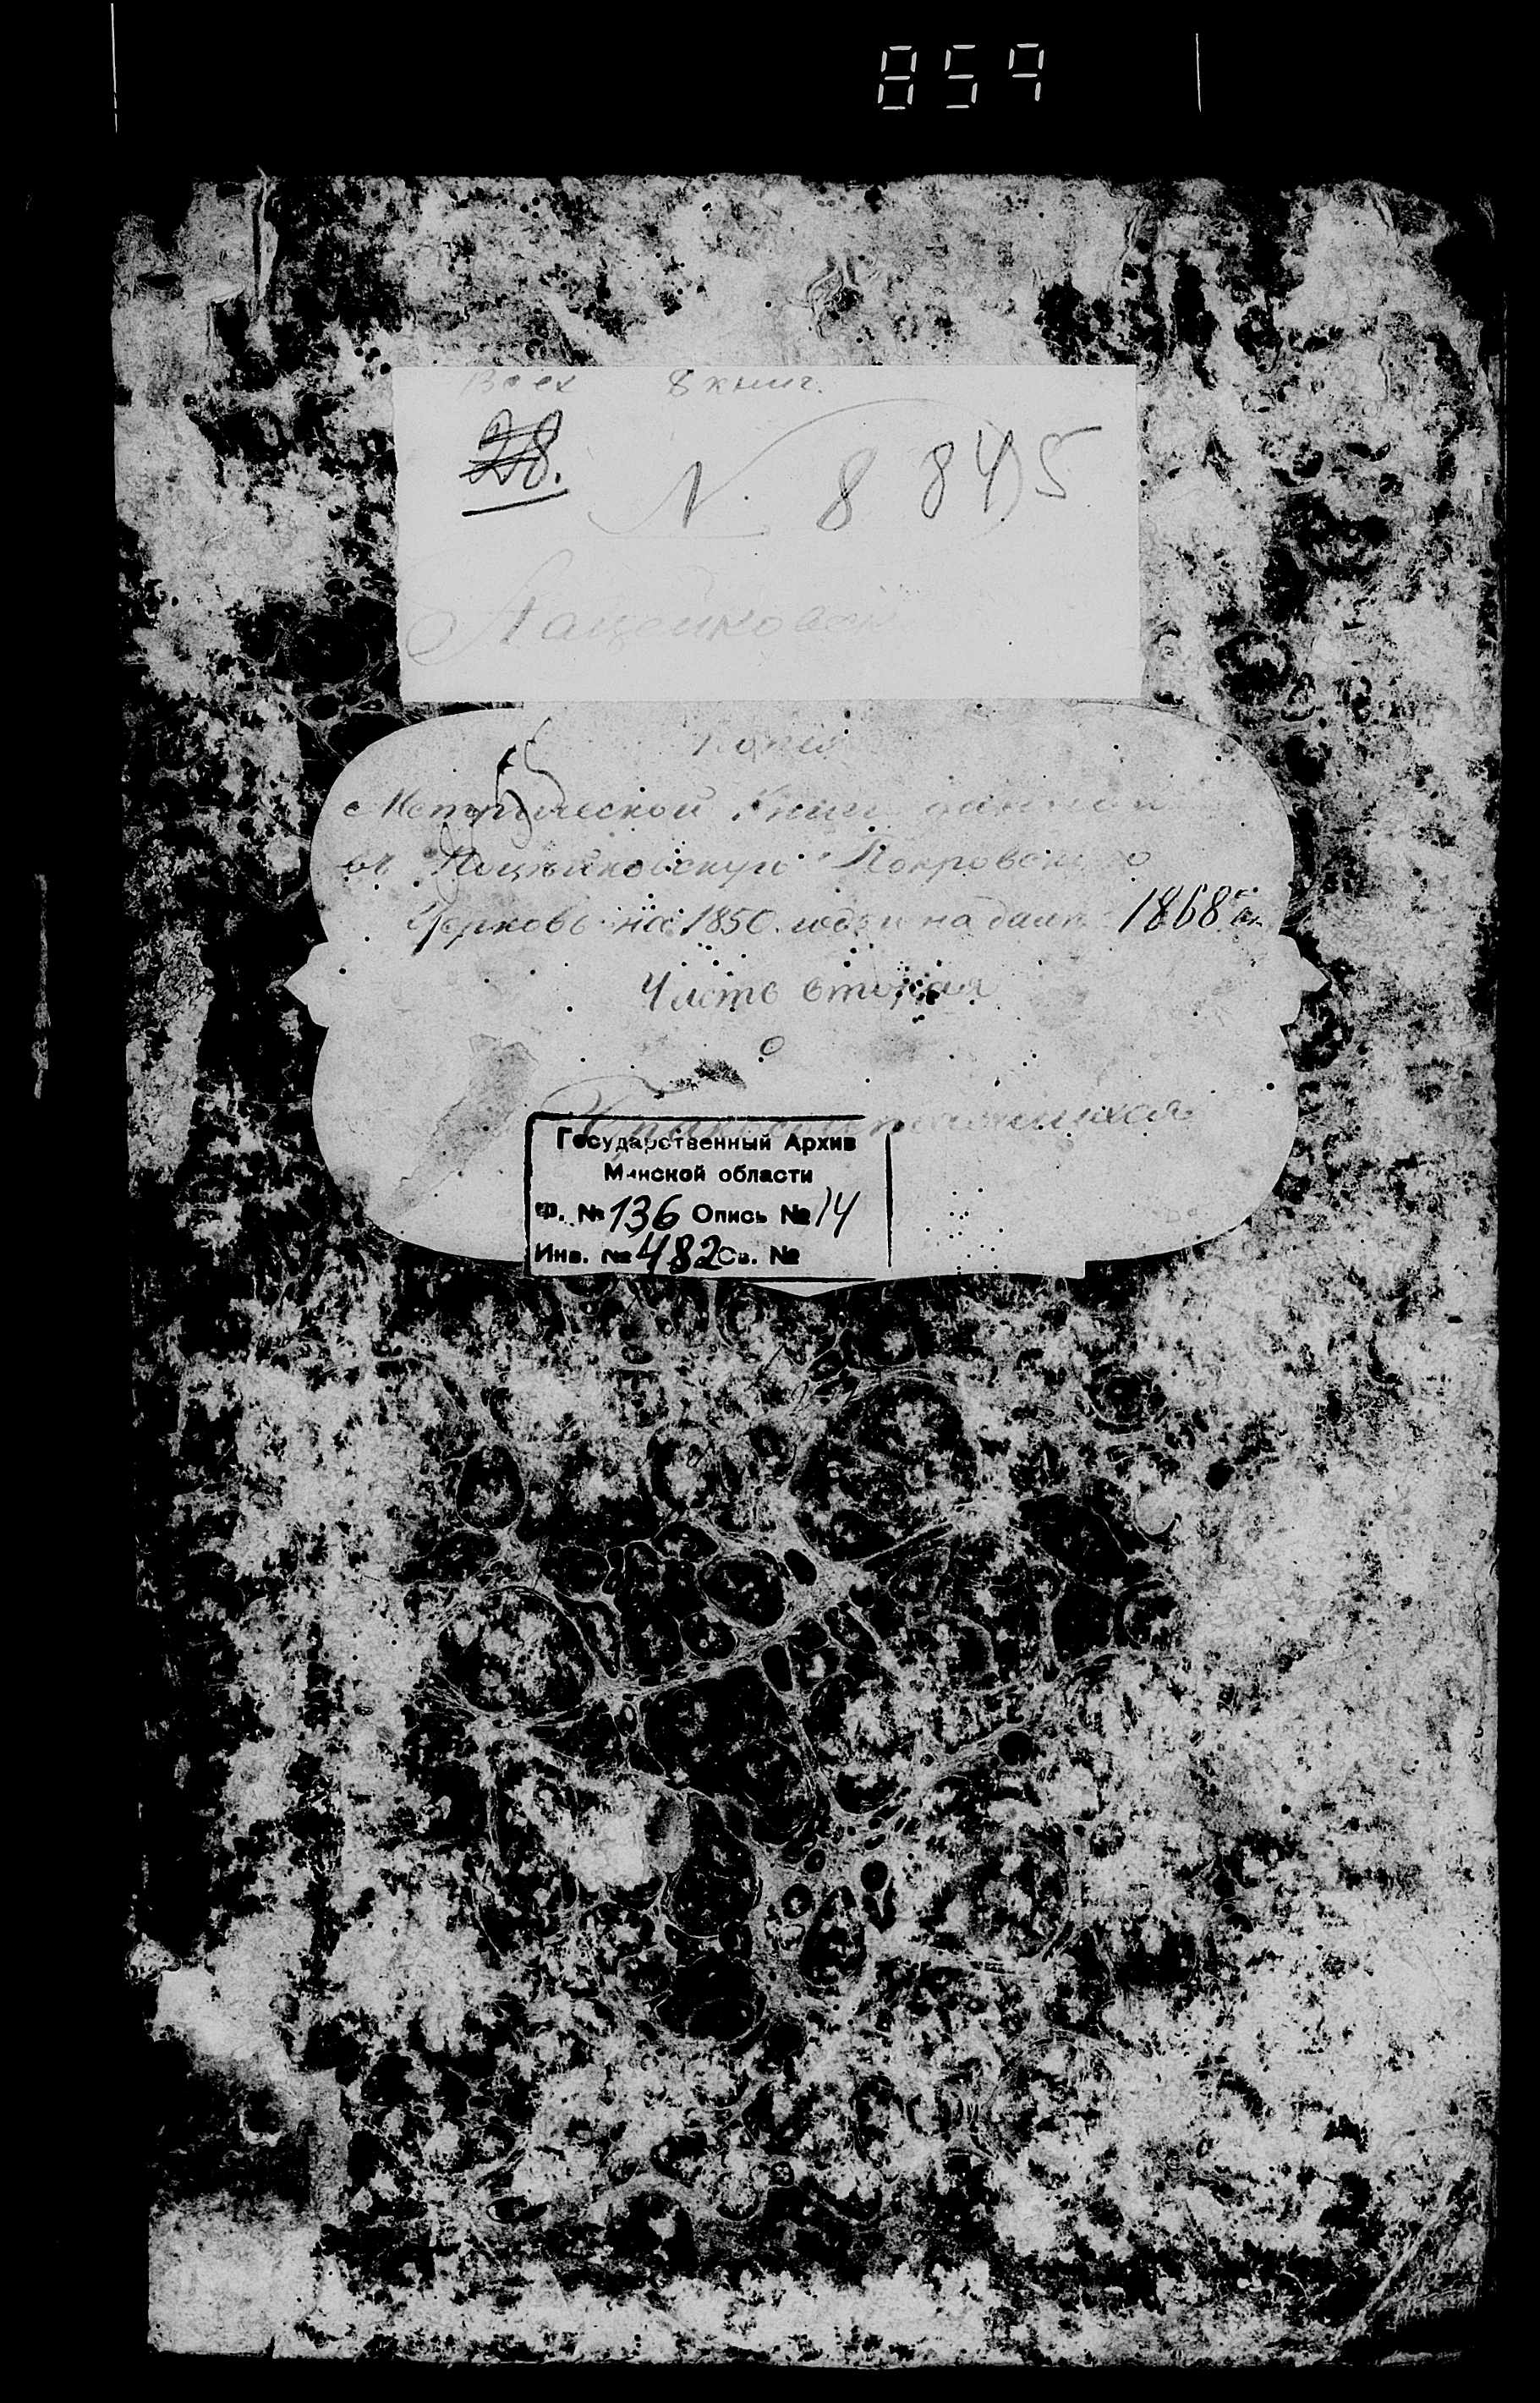 859
Всех 8 книг.
28.
N. 8 845
Пацейковск
Копія
Метрической Книги данной
въ Поцѣйковскую Покровскую
Церковь на 1850. годъ и на далѣ 1868
Часть вторая
о
Бракосочетавшихся
Государственный Архив
Минской области
Ф. № 136 Опись № 14
Инв. № 482 Св. №